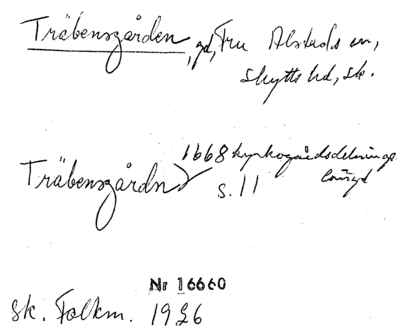 Träbensgården, gd, Fru Alstads sn,
Skytts hd, Sk.
Träbensgårdn 1668 kyrkogårdsdelnings
s. 11
Nr 16660
Sk. Folkm. 1936